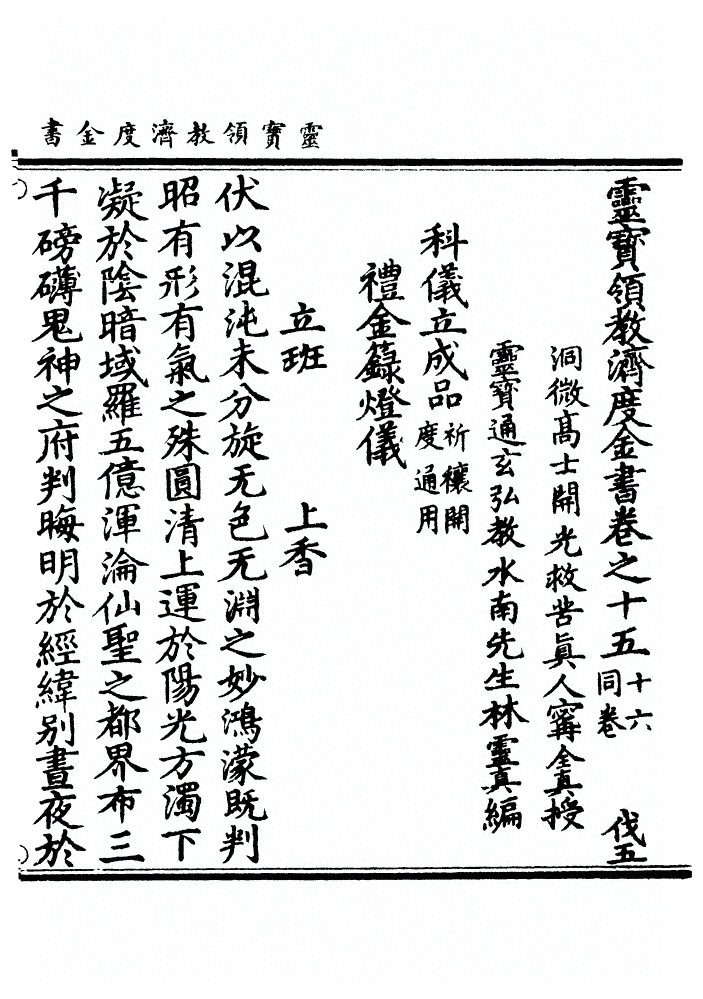 靈寶領教濟度金書
靈寶領教濟度金書卷之十五十六同卷 伐五
洞微高士開光救苦眞人寗全真授
靈寶通玄弘教水南先生林靈真編
科儀立成品祈禳開度通用
禮金籙燈儀
立班 上香
伏以混沌未分旋无色无淵之妙鴻濛既判
昭有形有氣之殊圓清上運於陽光方濁下
凝於陰暗域羅五億渾淪仙聖之都界布三
千磅礴鬼神之府判晦明於經緯别晝夜於